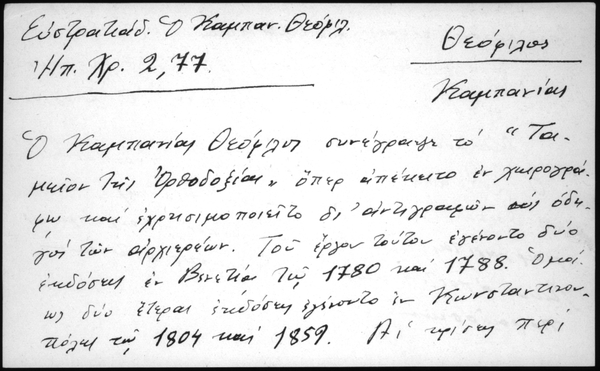 Εὐστρατιάδ. Ὁ Καμπαν. Θεόφιλ.
Ἠπ. Χρ. 2, 77.
Θεόφιλος
Καμπανίας
Ὁ Καμπανίας Θεόφιλος συνέγραψε τό "Τα-
μεῖον τῆς Ὀρθοδοξίας" ὅπερ ἀπέκειτο ἐν χειρογρά-
φῳ καί ἐχρησιμοποιεῖτο δι' ἀντιγραφῶν ὡς ὁδη-
γός τῶν ἀρχιερέων. Τοῦ ἔργου τούτου ἐγένοντο δύο
ἐκδόσεις ἐν Βενετίᾳ τῷ 1780 καί 1788. Ὁμοί-
ως δύο ἕτεραι ἐκδόσεις ἐγένοντο ἐν Κωνσταντινου-
πόλει τῷ 1804 καί 1859. Αἱ κρίσεις περί